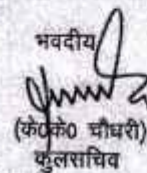 भवदीय
(के०के० चौधरी)
कुलसचिव